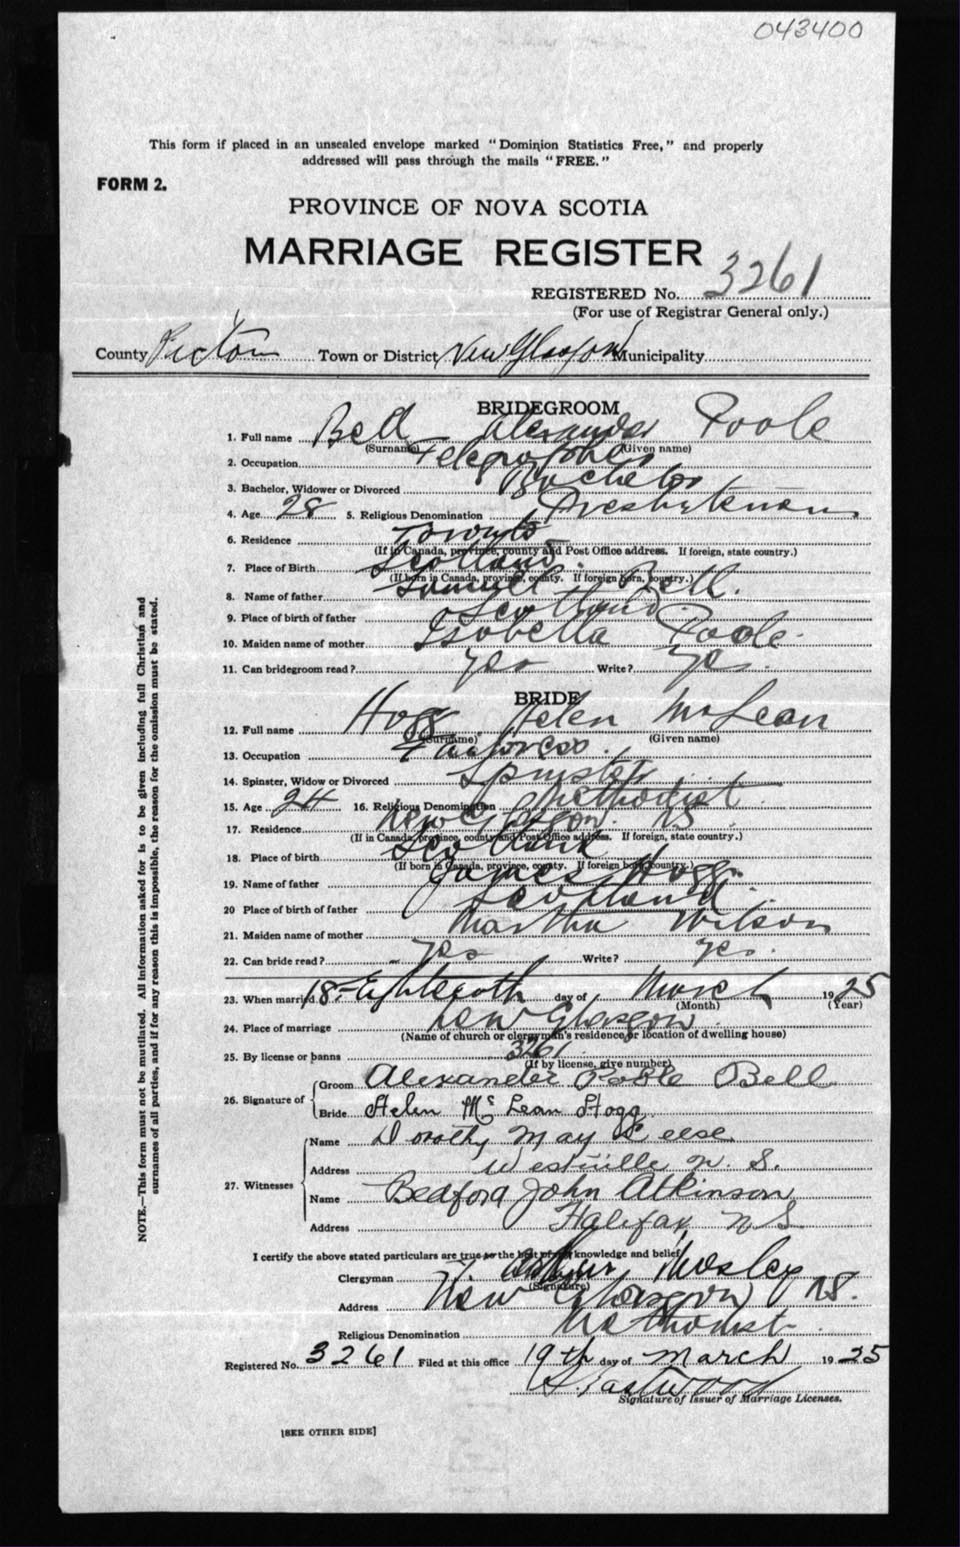 043400
This form if placed in an unsealed envelope marked "Dominion Statistics Free," and properly
addressed will pass through the mails "FREE."
FORM 2.
PROVINCE OF NOVA SCOTIA
MARRIAGE REGISTER
REGISTERED No. 3261
(For use of Registrar General only.)
County Pictou Town or District New Glasgow Municipality
BRIDEGROOM
1. Full name Bell Alexander Poole
(Surname) (Given name)
2. Occupation
3. Bachelor, Widower or Divorced Bachelor
4. Age 28 5. Religious Denomination Presbyterian
6. Residence Toronto
(If in Canada, province, county and Post Office address. If foreign, state country.)
7. Place of Birth Scotland
(If born in Canada, province, county. If foreign born, country.)
8. Name of father Samuel Bell.
9. Place of birth of father Scotland
10. Maiden name of mother Isobella Poole
11. Can bridegroom read? yes Write? yes.
BRIDE
12. Full name Hogg Helen McLean
(Surname) (Given name)
13. Occupation
14. Spinster, Widow or Divorced Spinster
15. Age 24 16. Religious Denomination Methodist
17. Residence New Glasgow. NS.
(If in Canada, province, county and Post Office address. If foreign, state country.)
18. Place of birth Scotland
(If born in Canada, province, county. If foreign born, country.)
19. Name of father James Hogg.
20 Place of birth of father Scotland
21. Maiden name of mother Martha Wilson
22. Can bride read? yes Write? yes.
23. When married 18- Eighteenth day of March 1925
(Month) (Year)
24. Place of marriage New Glasgow
(Name of church or clergyman's residence, or location of dwelling house)
25. By license or banns 3261
(If by license, give number)
26. Signature of Groom Alexander Poole Bell
Bride Helen Mc Lean Hogg
27. Witnesses Name Dorothy May Reese
Address Westville N. S.
Name Bedford John Atkinson
Address Halifax N S
I certify the above stated particulars are true to the best of my knowledge and belief
Clergyman Arthur Mosley
(Signature)
Address New Glasgow NS.
Religious Denomination Methodist
Registered No. 3261 Filed at this office 19th day of March 1925
Signature of Issuer of Marriage Licenses.
[SEE OTHER SIDE]
NOTE.—This form must not be mutilated. All information asked for is to be given including full Christian and
surnames of all parties, and if for any reason this is impossible, the reason for the omission must be stated.